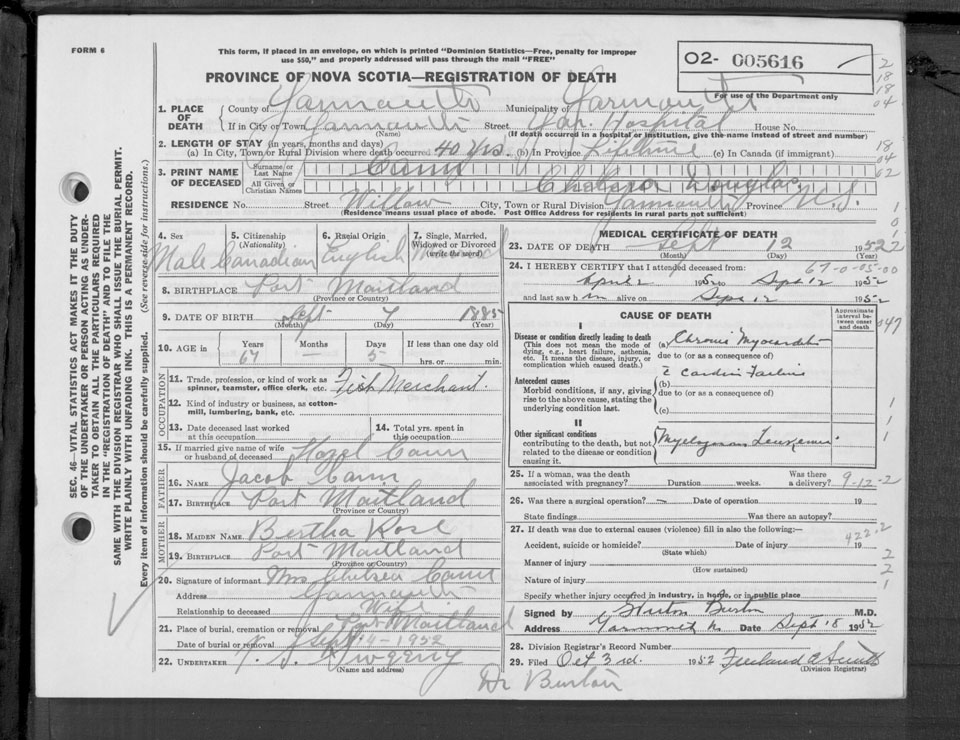 FORM 6
This form, if placed in an envelope, on which is printed "Dominion Statistics—Free, penalty for improper
use $50," and properly addressed will pass through the mail "FREE"
PROVINCE OF NOVA SCOTIA—REGISTRATION OF DEATH
O2- 005616
For use of the Department only
2
18
04
1. PLACE OF DEATH County of Yarmouth Municipality of Yarmouth
If in City or Town Yarmouth Street Yar. Hospital House No.
(Name) (If death occurred in a hospital or institution, give the name instead of street and number)
2. LENGTH OF STAY (in years, months and days)
(a) In City, Town or Rural Division where death occurred 40 yrs. (b) In Province Lifetime (c) In Canada (if immigrant)
18
04
62
3. PRINT NAME OF DECEASED Surname or Last Name Cann
All Given or Christian Names Chelsea Douglas
RESIDENCE No. Street Willow City, Town or Rural Division Yarmouth Province N.S.
(Residence means usual place of abode. Post Office Address for residents in rural parts not sufficient)
SEC. 46—VITAL STATISTICS ACT MAKES IT THE DUTY
OF THE UNDERTAKER OR PERSON ACTING AS UNDER-
TAKER TO OBTAIN ALL THE PARTICULARS REQUIRED
IN THE "REGISTRATION OF DEATH" AND TO FILE THE
SAME WITH THE DIVISION REGISTRAR WHO SHALL ISSUE THE BURIAL PERMIT.
WRITE PLAINLY WITH UNFADING INK. THIS IS A PERMANENT RECORD.
Every item of information should be carefully supplied. (See reverse side for instructions.)
4. Sex 5. Citizenship (Nationality) 6. Racial Origin 7. Single, Married, Widowed or Divorced (write the word)
Male Canadian English Married
8. BIRTHPLACE Port Maitland
(Province or Country)
9. DATE OF BIRTH Sept 7 1885
(Month) (Day) (Year)
10. AGE in Years Months Days If less than one day old
67 — 5 hrs. or min.
OCCUPATION
11. Trade, profession, or kind of work as spinner, teamster, office clerk, etc. Fish Merchant.
12. Kind of industry or business, as cotton-mill, lumbering, bank, etc.
13. Date deceased last worked at this occupation 14. Total yrs. spent in this occupation
15. If married give name of wife or husband of deceased Hazel Cann
FATHER
16. NAME Jacob Cann
17. BIRTHPLACE Port Maitland
(Province or Country)
MOTHER
18. MAIDEN NAME Bertha Rose
19. BIRTHPLACE Port Maitland
(Province or Country)
20. Signature of informant Mrs Chelsea Cann
Address Yarmouth
Relationship to deceased Wife
21. Place of burial, cremation or removal Port Maitland
Date of burial or removal Sept 14 - 1952
22. UNDERTAKER V. J. Sweeny
(Name and address)
MEDICAL CERTIFICATE OF DEATH
23. DATE OF DEATH Sept 12 1952
(Month) (Day) (Year)
24. I HEREBY CERTIFY that I attended deceased from: 67-0-05-00
April 2 1952 to Sept 12 1952
and last saw him alive on Sept 12 1952
CAUSE OF DEATH
Approximate interval between onset and death
047
I
Disease or condition directly leading to death
(This does not mean the mode of dying, e.g., heart failure, asthenia, etc. It means the disease, injury, or complication which caused death.)
(a) Chronic Myocarditis
due to (or as a consequence of)
c̄ Cardiac Failure
Antecedent causes
Morbid conditions, if any, giving rise to the above cause, stating the underlying condition last.
(b)
due to (or as a consequence of)
(c)
II
Other significant conditions
contributing to the death, but not related to the disease or condition causing it.
Myelogenous Leukemia
25. If a woman, was the death associated with pregnancy? Duration weeks. Was there a delivery?
9-12-2
26. Was there a surgical operation? — Date of operation 19
State findings Was there an autopsy?
27. If death was due to external causes (violence) fill in also the following:— 422-2
Accident, suicide or homicide? Date of injury 19
(State which)
Manner of injury
(How sustained)
Nature of injury
Specify whether injury occurred in industry, in home, or in public place
Signed by Burton M.D.
Address Yarmouth N. Date Sept 18 1952
28. Division Registrar's Record Number
29. Filed Oct 3rd. 1952 Freeland A Smith
(Division Registrar)
Dr Burton